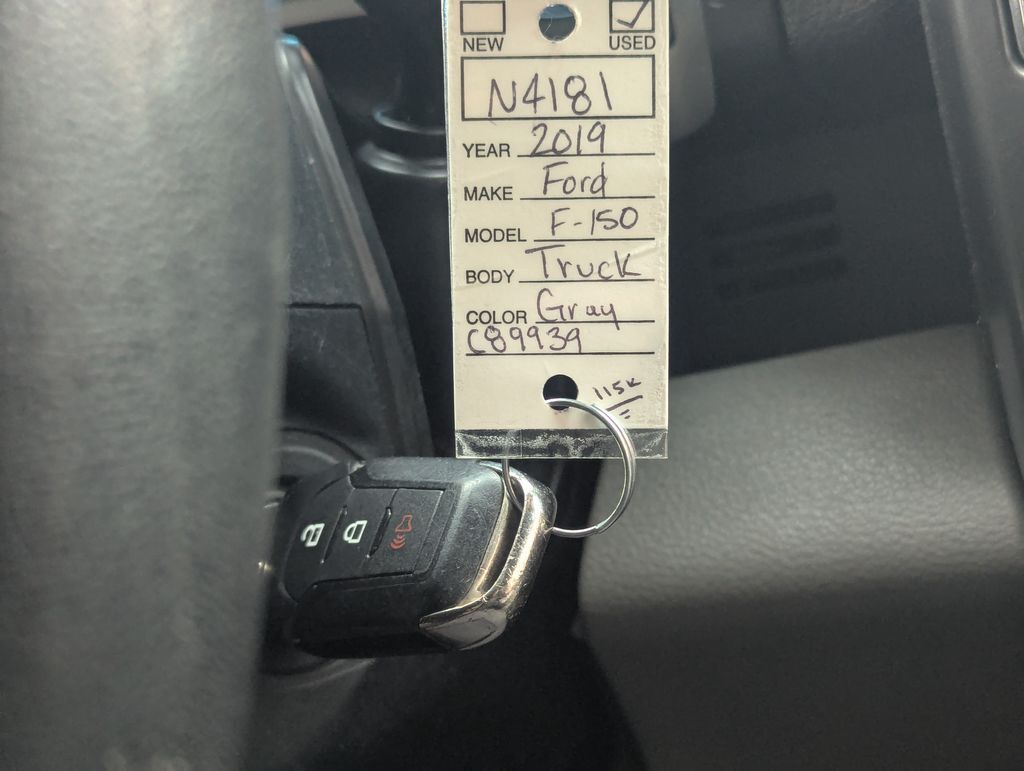 NEW USED
N4181
YEAR 2019
MAKE Ford
MODEL F-150
BODY Truck
COLOR Gray
C89939
115K